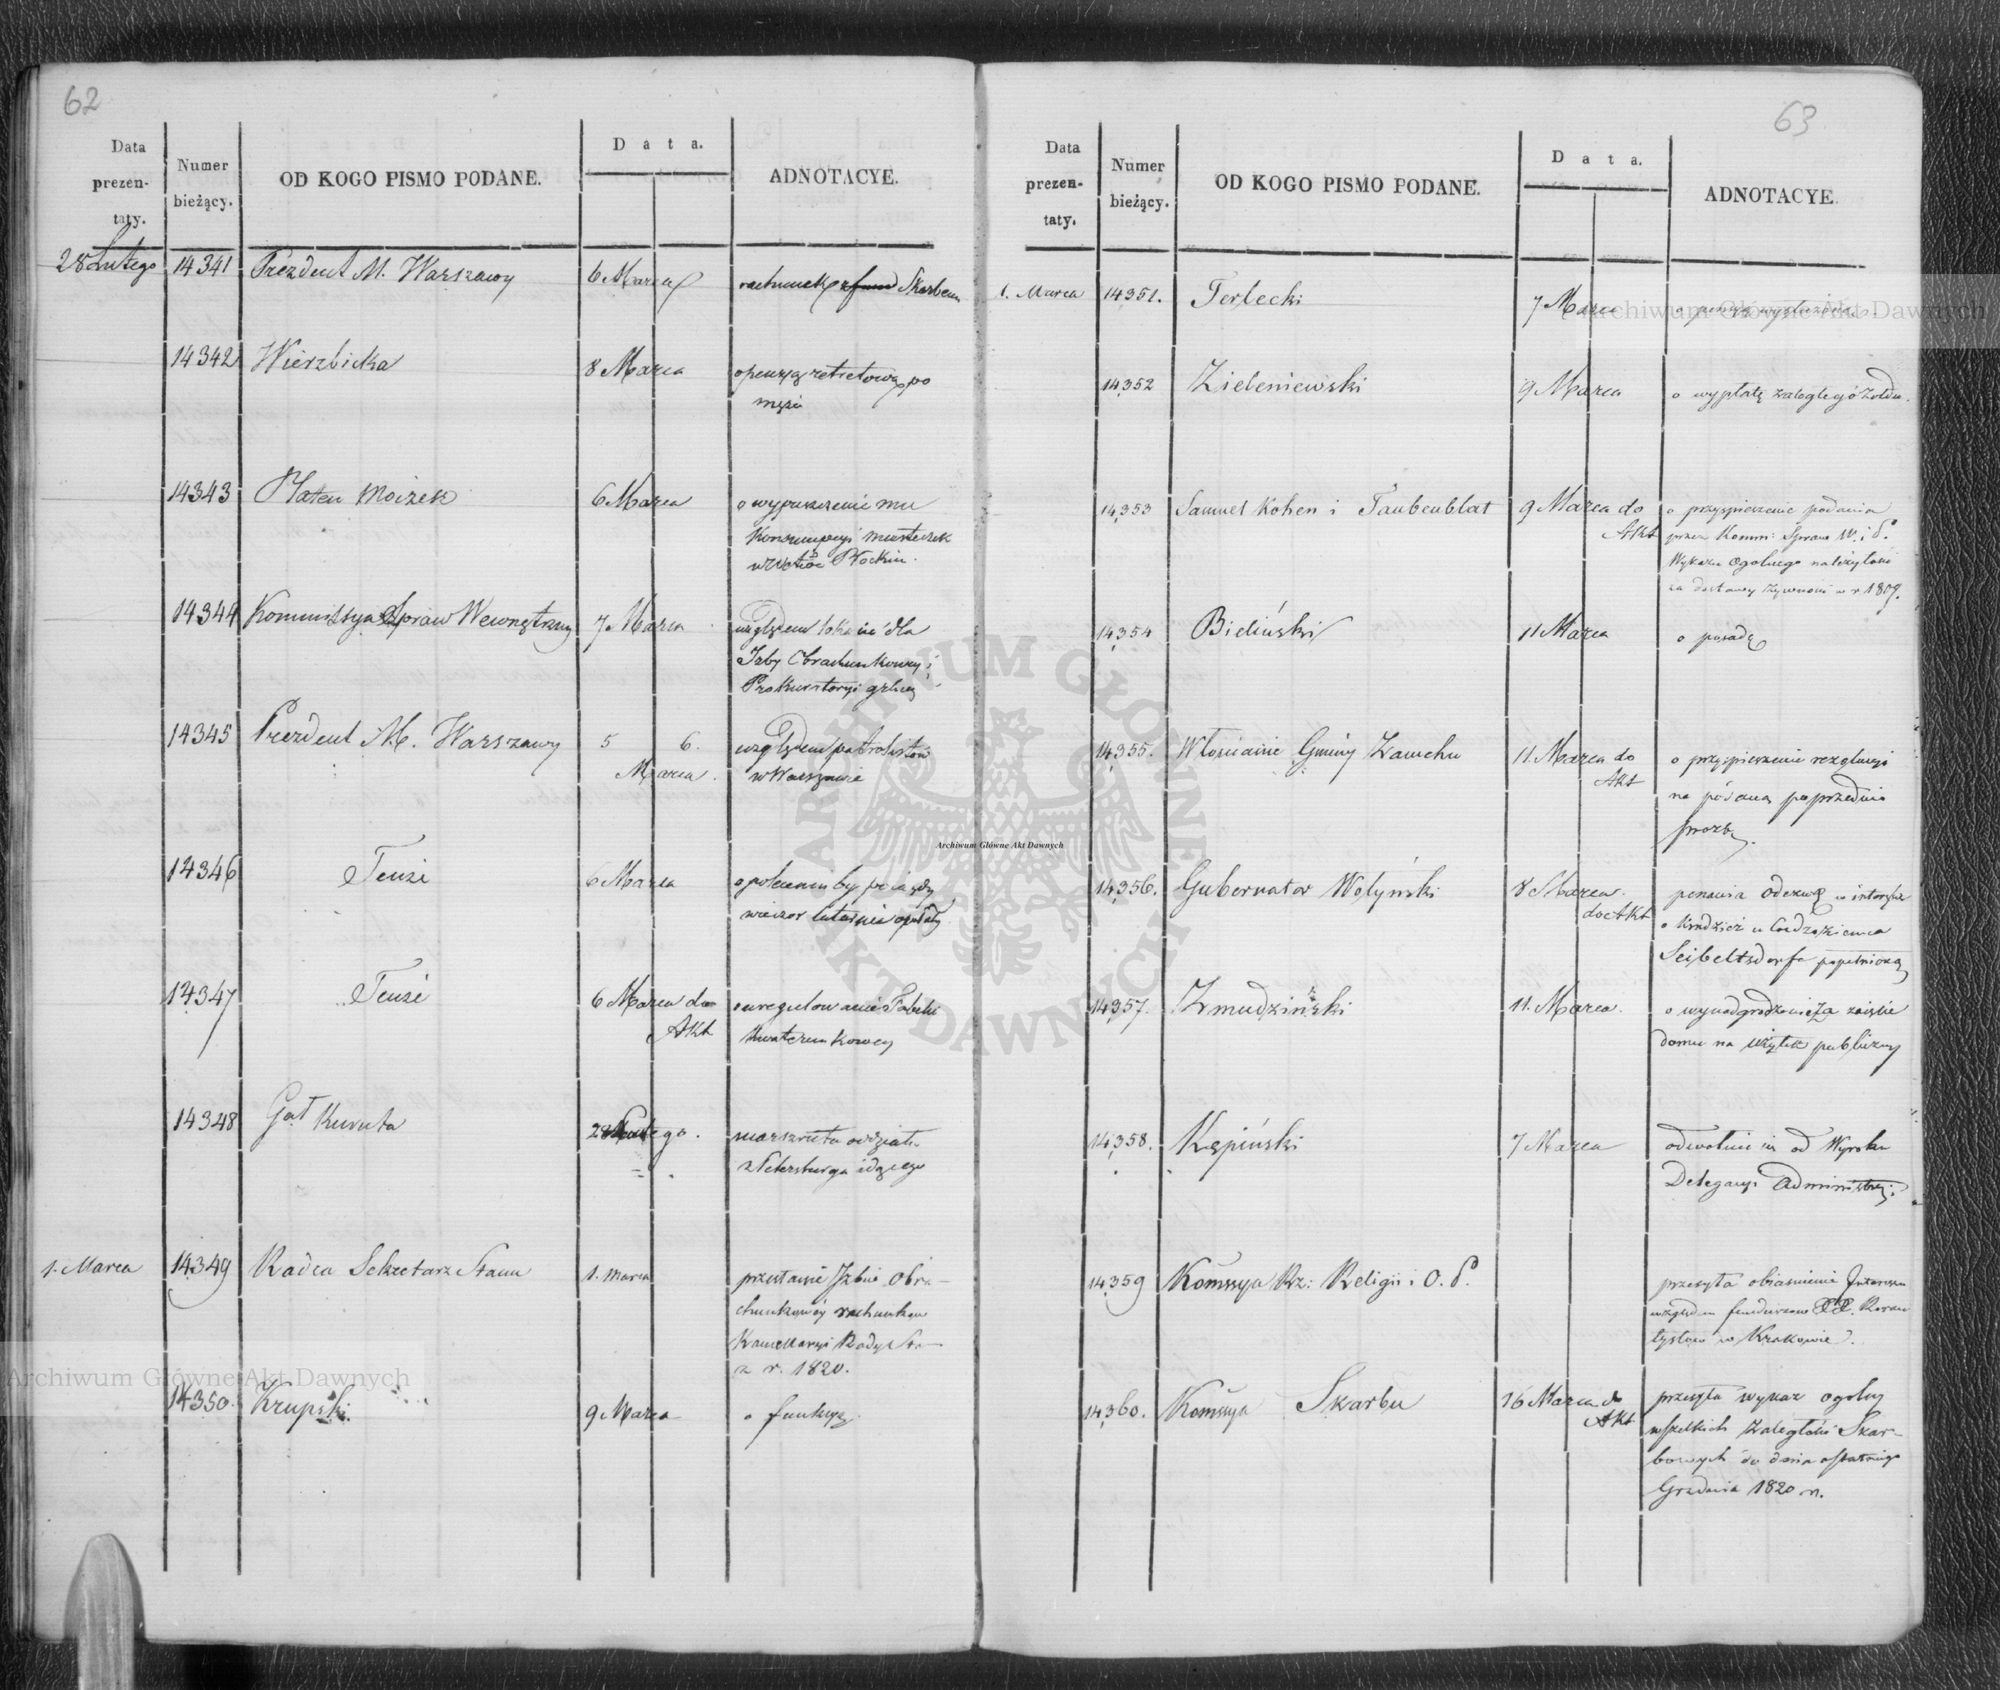 62
Data prezentaty.
Numer bieżący.
OD KOGO PISMO PODANE.
Data.
ADNOTACYE.
28 Lutego 14341 Prezdent M. Warszawy 6 Marca rachunek Skarbem
14342 Wierzbicka 8 Marca o pensyą retretową po
mężu
14343 Platen Moizek 6 Marca o wypuszczenie mu
Konsumpcyi miasteczek
w Wdztwie Płockim.
14344 Kommissya Spraw Wewnętrzny 7 Marca względem lokalu dla
Izby Obrachunkowey i
Prokuratoryi gelney
14345 Prezdent M. Warszawy 5 6. względem patrolistów
Marca. w Warszawie
14346 Tenże 6 Marca o polecenie by pojazdy
wieczor latarnie opalały
14347 Tenże 6 Marca do o uregulowanie Tabelli
Akt kwaterunkowey
14348 Gał Kuruta 28 Lutego. marszruta oddziału
z Petersburga idącego
1. Marca 14349 Radca Sekretarz Stanu 1. Marca przesłanie Izbie Obra-
chunkowéy rachunków
Kancellaryi Rady Sta-
z r. 1820.
14350. Krupski 9 Marca o funkcyą.
63
Data prezentaty.
Numer bieżący.
OD KOGO PISMO PODANE.
Data.
ADNOTACYE.
1. Marca 14351. Terlecki 7 Marca o pensyą wysłużoną.
14352 Zieleniewski 9 Marca o wypłatę zaległego żołdu.
14353 Samuel Kohen i Taubenblat 9 Marca do o przyspieszenie podania
Akt przez Komm: Spraw W. i P.
Wykazu ogolnego należytości
za dostawy żywności w r 1809.
14354 Bieliński 11 Marca o posadę
14355. Włościanie Gminy Zamchu 11 Marca do o przyspieszenie rezolucyi
Akt na podaną poprzednio
prozbę.
14356. Gubernator Wołyński 8 Marca. ponawia odezwę w interesie
do Akt o kradzież u Cudzoziemca
Seibeltsdorfa popełnioną
14357. Zmudziński 11. Marca. o wynadgrodzenie za zajęcie
domu na użytek publiczny
14358. Kępiński 7 Marca odwołuie się od Wyroku
Delegacyi Administrcy:
14359 Kommssya Rz: Religii i O. P. przesyła obiasnienie Interesu
względem funduszow XX. Roran
tystow w Krakowie.
14360. Kommssya Skarbu 16 Marca do przesyła wykaz ogolny
Akt wszelkich zaległości Skar-
bowych do dnia ostatniego
Grudnia 1820 r.
Archiwum Główne Akt Dawnych
Archiwum Główne Akt Dawnych
ARCHIWUM GŁÓWNE AKT DAWNYCH
Archiwum Główne Akt Dawnych